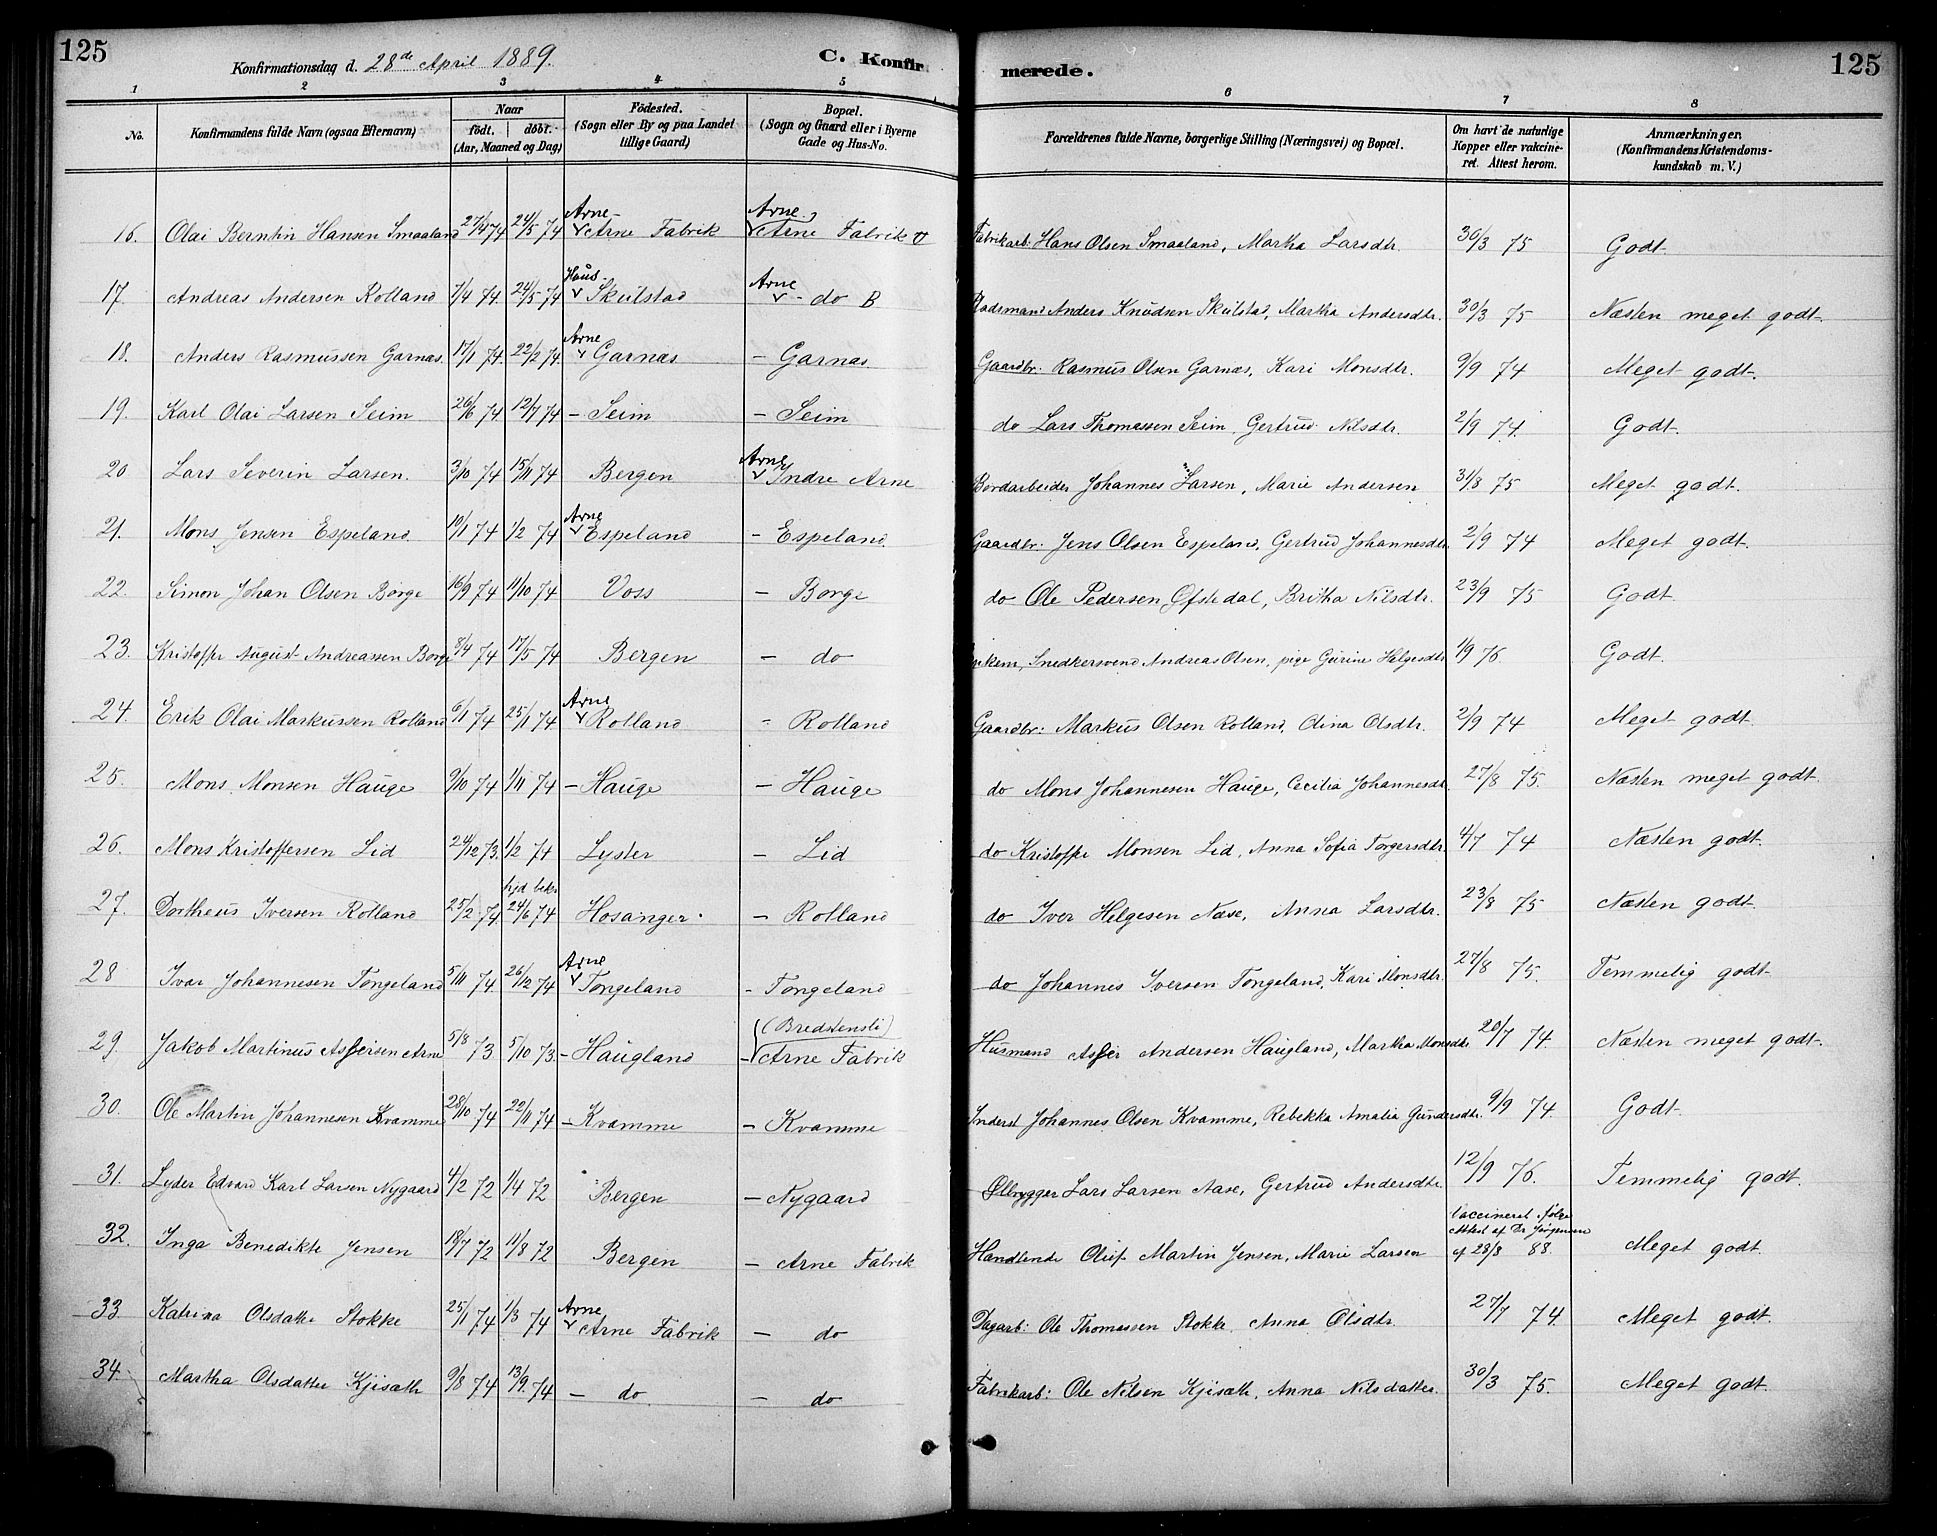 125
Konfirmationsdag d. 28de April 1889.
C. Konfir
merede.
125
1 2 3 4 5 6 7 8
No. Konfirmandens fulde Navn (ogsaa Efternavn) Naar født. døbt. (Aar, Maaned og Dag) Födested. (Sogn eller By og paa Landet tillige Gaard) Bopæl. (Sogn og Gaard eller i Byerne Gade og Hus-No. Forældrenes fulde Navne, borgerlige Stilling (Næringsvei) og Bopæl. Om havt de naturlige Kopper eller vakcineret. Attest herom. Anmærkninger. (Konfirmandens Kristendomskundskab m. V.)
16. Olai Berntin Hansen Smaaland 27/4 74 24/5 74 Arne - Arne Fabrik Arne, Arne Fabrik Fabrikarb: Hans Olsen Smaaland, Martha Larsdtr. 30/3 75 Godt.
17. Andreas Andersen Rolland 7/4 74 24/5 74 Haus - Skulstad Arne - do B Pladsmand Anders Knudsen Skulstad, Martha Andersdtr. 30/3 75 Næsten meget godt.
18. Anders Rasmussen Garnæs. 17/1 74. 22/2 74. Arne Garnæs - Garnæs. Gaardbr: Rasmus Olsen Garnæs, Kari Monsdtr. 9/9 74 Meget godt.
19. Karl Olai Larsen Seim 26/6 74 12/7 74 - Seim - Seim do Lars Thomassen Seim, Gertrud Nilsdtr. 2/9 74. Godt.
20 Lars Severin Larsen. 3/10 74 15/11 74 Bergen Arne Indre Arne Bordarbeider Johannes Larsen, Marie Andersen 31/8 75 Meget godt.
21. Mons Jensen Espeland. 10/1 74 1/2 74 Arne Espeland - Espeland. Gaardbr: Jens Olsen Espeland, Gertrud Johannesdtr. 2/9 74 Meget godt.
22. Simon Johan Olsen Borge 16/9 74 11/10 74 Voss - Borge do Ole Pedersen Øfstedal, Britha Nilsdtr. 23/9 75 Godt.
23. Kristoffer August Andreassen Borge 8/4 74 17/5 74 Bergen - do Snedkersvend Andreas Olsen, pige Gurine Helgesdtr 1/9 76. Godt.
24. Erik Olai Markussen Rolland 6/1 74 25/1 74 Arne Rolland - Rolland Gaardbr: Markus Olsen Rolland, Olina Olsdtr. 2/9 74 Meget godt.
25. Mons Monsen Hauge 9/10 74 1/11 74 - Hauge - Hauge do Mons Johannesen Hauge, Cecilia Johannesdtr. 27/8 75. Næsten meget godt
26. Mons Kristoffersen Lid 24/12 73. 1/2 74 Lyster - Lid do Kristoffer Monsen Lid, Anna Sofia Torgersdtr. 4/7 74 Næsten godt.
27. Dortheus Iversen Rolland 25/2 74 hjd bekr 24/6 74 Hosanger. - Rolland do Iver Helgesen Næse, Anna Larsdtr. 23/8 75 Næsten godt.
28 Ivar Johannesen Tongeland 5/11 74. 26/12 74 Arne Tongeland - Tongeland do Johannes Iversen Tongeland, Kari Monsdtr. 27/8 75. Temmelig godt
29. Jakob Martinus Assersen Arne 5/8 73 5/10 73. - Haugland (Bredstensli) - Arne Fabrik Husmand Asser Andersen Haugland, Martha Monsdtr 20/7 74. Næsten meget godt.
30. Ole Martin Johannesen Kvamme 28/10 74 22/11 74 - Kvamme - Kvamme Inderst Johannes Olsen Kvamme, Rebekka Amalia Gundersdtr. 9/9 74. Godt.
31. Lyder Edvard Karl Larsen Nygaard 4/2 72 1/4 72 Bergen - Nygaard Ølbrygger Lars Larsen Aase, Gertrud Andersdtr. 12/9 76. Temmelig godt.
32. Inga Benedikte Jensen 18/7 72 11/8 72 Bergen - Arne Fabrik Handlende Oluf Martin Jensen, Marie Larsen Vaccineret ifølge Attest af Dr Jørgensen af 28/3 88. Meget godt.
33 Katrina Olsdatter Stokke 25/1 74 1/3 74 Arne Arne Fabrik - do Dagarb: Ole Thomassen Stokke, Anna Olsdtr. 27/7 74. Meget godt.
34. Martha Olsdatter Kjisæth 9/8 74 13/9. 74 - do. - do Fabrikarb: Ole Nilsen Kjisæth, Anna Nilsdatter. 30/3 75. Meget godt.